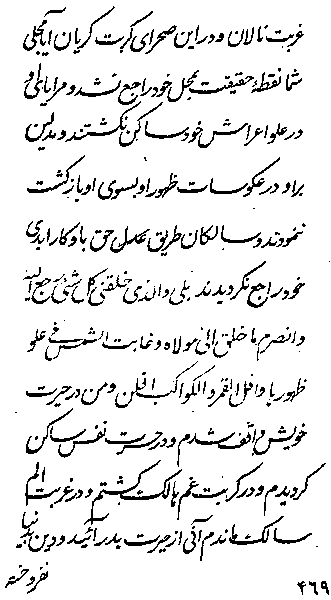 غربت نالان و در این صحرای کربت گریان آیا تجلی
شما نقطهٔ حقیقت بمحل خود راجع نشد و مرایای او
در علو اعراش خود ساکن نگشتند و مدلین
براو در عکوسات ظهور او بسوی او بازگشت
ننمودند و سالکان طریق عدل حق باوکار ابدی
خود راجع نگردیدند بلی والذی خلقنی کل شئ رجع الیه
وانصرم ما خلق الی مولاه و غابت الشمس فی علو
ظهورها وافل القمر و الکواکب افلن و من در حیرت
خویش واقف شدم و در حسرت نفس ساکن
گردیدم و در کربت غم هالک گشتم و در غربت الم
سالک ماندم آنی از حیرت بدر آئید و دین بدنیا
نفروخته
۴۶۹